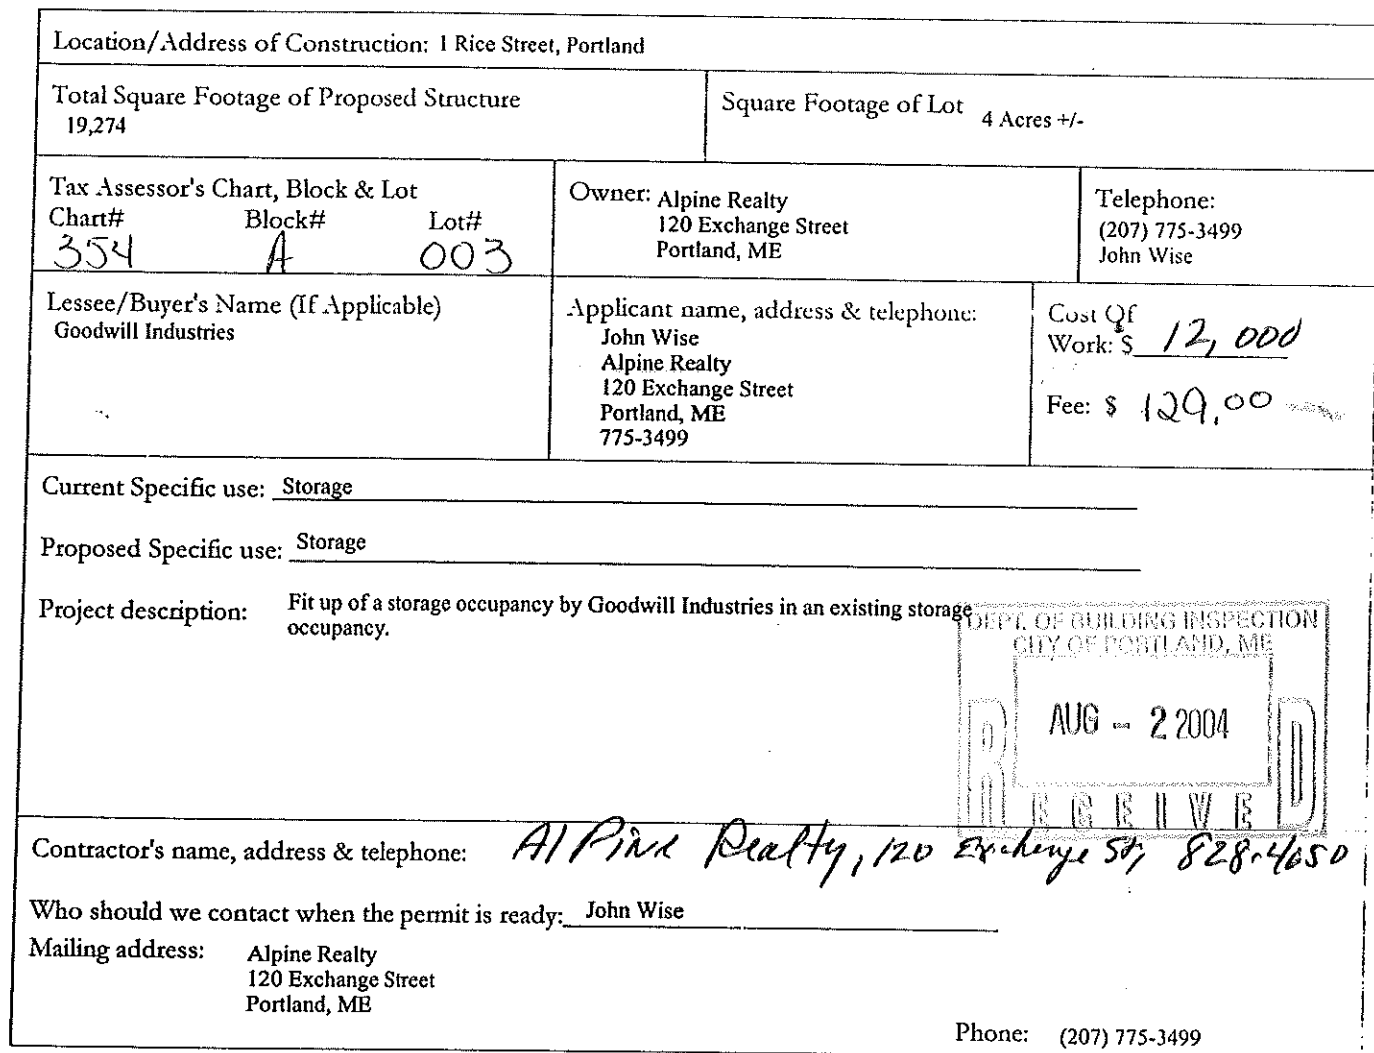 Location/Address of Construction: 1 Rice Street, Portland
Total Square Footage of Proposed Structure
19,274
Square Footage of Lot 4 Acres +/-
Tax Assessor's Chart, Block & Lot
Chart# Block# Lot#
354 A 003
Owner: Alpine Realty
120 Exchange Street
Portland, ME
Telephone:
(207) 775-3499
John Wise
Lessee/Buyer's Name (If Applicable)
Goodwill Industries
Applicant name, address & telephone:
John Wise
Alpine Realty
120 Exchange Street
Portland, ME
775-3499
Cost Of
Work: $ 12,000
Fee: $ 129.00
Current Specific use: Storage
Proposed Specific use: Storage
Project description: Fit up of a storage occupancy by Goodwill Industries in an existing storage
occupancy.
DEPT. OF BUILDING INSPECTION
CITY OF PORTLAND, ME
AUG - 2 2004
RECEIVED
Contractor's name, address & telephone: AlPine Realty, 120 Exchange St, 828-4650
Who should we contact when the permit is ready: John Wise
Mailing address: Alpine Realty
120 Exchange Street
Portland, ME
Phone: (207) 775-3499